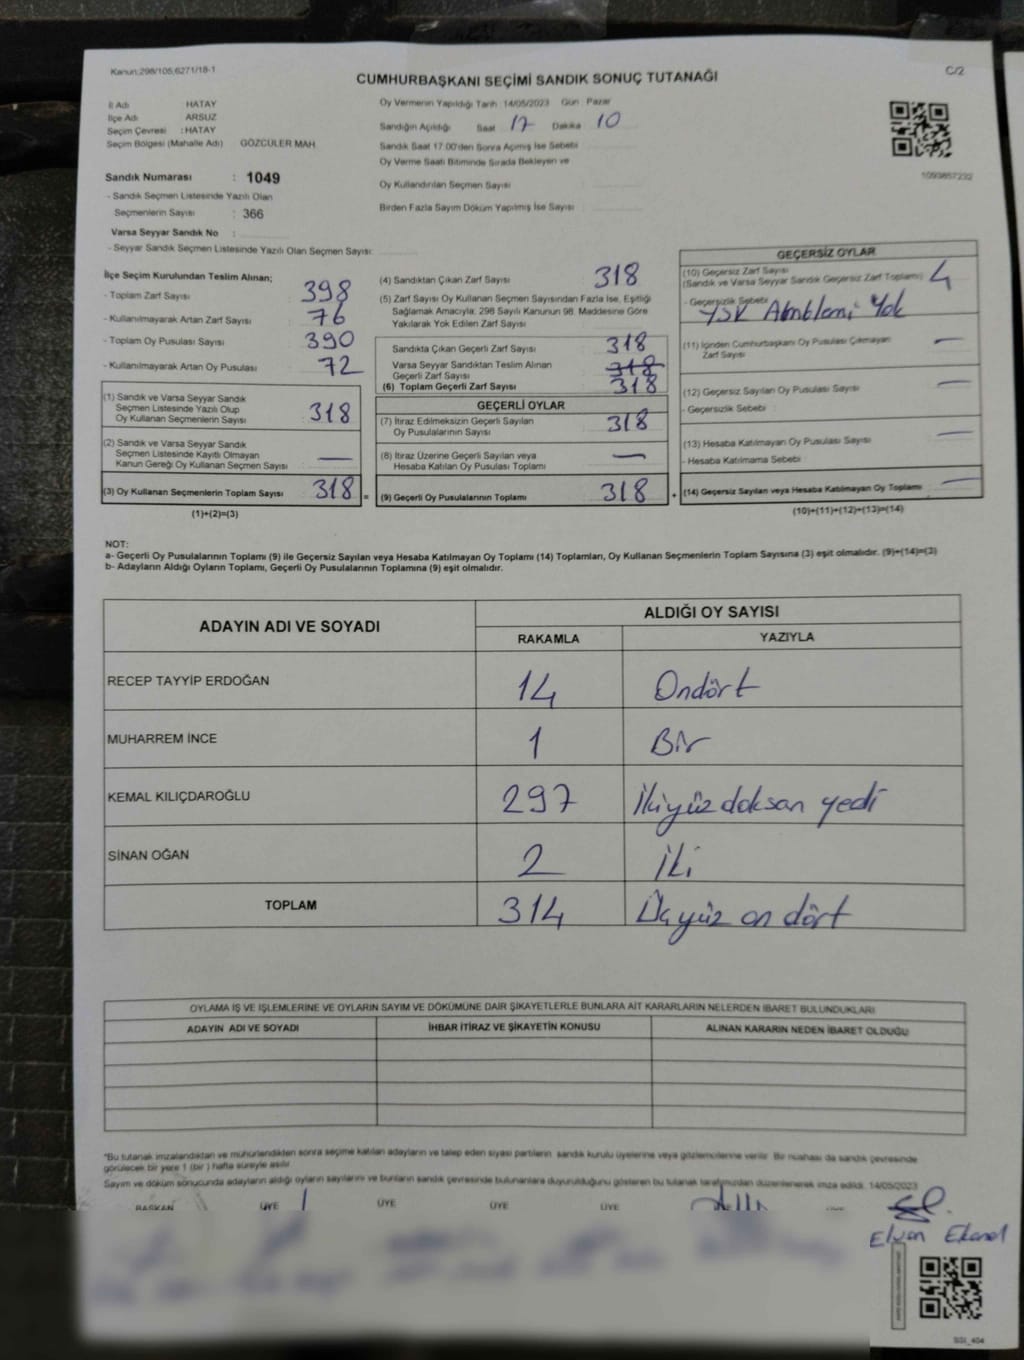 Kanun:298/105,6271/18-1
CUMHURBAŞKANI SEÇİMİ SANDIK SONUÇ TUTANAĞI
C/2
İl Adı : HATAY
İlçe Adı ARSUZ
Seçim Çevresi : HATAY
Seçim Bölgesi (Mahalle Adı) GÖZCÜLER MAH.
Sandık Numarası : 1049
- Sandık Seçmen Listesinde Yazılı Olan
Seçmenlerin Sayısı : 366
Varsa Seyyar Sandık No :
- Seyyar Sandık Seçmen Listesinde Yazılı Olan Seçmen Sayısı:
Oy Vermenin Yapıldığı Tarih : 14/05/2023 Gün : Pazar
Sandığın Açıldığı Saat 17 Dakika 10
Sandık Saat 17.00'den Sonra Açılmış İse Sebebi
Oy Verme Saati Bitiminde Sırada Bekleyen ve
Oy Kullandırılan Seçmen Sayısı
Birden Fazla Sayım Döküm Yapılmış İse Sayısı
1093857232
İlçe Seçim Kurulundan Teslim Alınan;
- Toplam Zarf Sayısı : 398
- Kullanılmayarak Artan Zarf Sayısı : 76
- Toplam Oy Pusulası Sayısı : 390
- Kullanılmayarak Artan Oy Pusulası : 72
(1) Sandık ve Varsa Seyyar Sandık
Seçmen Listesinde Yazılı Olup
Oy Kullanan Seçmenlerin Sayısı : 318
(2) Sandık ve Varsa Seyyar Sandık
Seçmen Listesinde Kayıtlı Olmayan
Kanun Gereği Oy Kullanan Seçmen Sayısı : —
(3) Oy Kullanan Seçmenlerin Toplam Sayısı : 318 =
(1)+(2)=(3)
(4) Sandıktan Çıkan Zarf Sayısı 318
(5) Zarf Sayısı Oy Kullanan Seçmen Sayısından Fazla İse, Eşitliği
Sağlamak Amacıyla, 298 Sayılı Kanunun 98. Maddesine Göre
Yakılarak Yok Edilen Zarf Sayısı
Sandıkta Çıkan Geçerli Zarf Sayısı 318
Varsa Seyyar Sandıktan Teslim Alınan
Geçerli Zarf Sayısı 318
(6) Toplam Geçerli Zarf Sayısı 318
GEÇERLİ OYLAR
(7) İtiraz Edilmeksizin Geçerli Sayılan
Oy Pusulalarının Sayısı 318
(8) İtiraz Üzerine Geçerli Sayılan veya
Hesaba Katılan Oy Pusulası Toplamı —
(9) Geçerli Oy Pusulalarının Toplamı 318 +
GEÇERSİZ OYLAR
(10) Geçersiz Zarf Sayısı
(Sandık ve Varsa Seyyar Sandık Geçersiz Zarf Toplamı) 4
- Geçersizlik Sebebi
YSK Amblemi Yok
(11) İçinden Cumhurbaşkanı Oy Pusulası Çıkmayan
Zarf Sayısı —
(12) Geçersiz Sayılan Oy Pusulası Sayısı —
- Geçersizlik Sebebi :
(13) Hesaba Katılmayan Oy Pusulası Sayısı —
- Hesaba Katılmama Sebebi :
(14) Geçersiz Sayılan veya Hesaba Katılmayan Oy Toplamı —
(10)+(11)+(12)+(13)=(14)
NOT:
a- Geçerli Oy Pusulalarının Toplamı (9) ile Geçersiz Sayılan veya Hesaba Katılmayan Oy Toplamı (14) Toplamları, Oy Kullanan Seçmenlerin Toplam Sayısına (3) eşit olmalıdır. (9)+(14)=(3)
b- Adayların Aldığı Oyların Toplamı, Geçerli Oy Pusulalarının Toplamına (9) eşit olmalıdır.
ADAYIN ADI VE SOYADI ALDIĞI OY SAYISI
RAKAMLA YAZIYLA
RECEP TAYYİP ERDOĞAN 14 Ondört
MUHARREM İNCE 1 Bir
KEMAL KILIÇDAROĞLU 297 İkiyüz doksan yedi
SİNAN OĞAN 2 İki
TOPLAM 314 Üçyüz on dört
OYLAMA İŞ VE İŞLEMLERİNE VE OYLARIN SAYIM VE DÖKÜMÜNE DAİR ŞİKAYETLERLE BUNLARA AİT KARARLARIN NELERDEN İBARET BULUNDUKLARI
ADAYIN ADI VE SOYADI İHBAR İTİRAZ VE ŞİKAYETİN KONUSU ALINAN KARARIN NEDEN İBARET OLDUĞU
*Bu tutanak imzalandıktan ve mühürlendikten sonra seçime katılan adayların ve talep eden siyasi partilerin sandık kurulu üyelerine veya gözlemcilerine verilir. Bir nüshası da sandık çevresinde
görülecek bir yere 1 (bir) hafta süreyle asılır.
Sayım ve döküm sonucunda adayların aldığı oyların sayılarını ve bunların sandık çevresinde bulunanlara duyurulduğunu gösteren bu tutanak tarafımızdan düzenlenerek imza edildi. 14/05/2023
BAŞKAN ÜYE ÜYE ÜYE ÜYE
Elvan